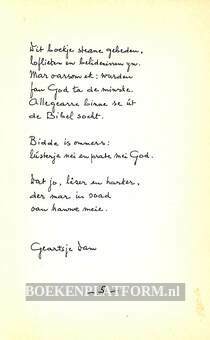 Dit boekje steane gebeden,
loflieten en belidenissen yn.
Mar oarsom ek: wurden
fan God ta de minske.
Allegearre binne se út
de Bibel socht.
Bidde is ommers:
lústerje nei en prate mei God.
Dat jo, lêzer en harker,
der mar in soad
oan hawwe meie.
Geartsje Dam
- 5 -
BOEKENPLATFORM.nl